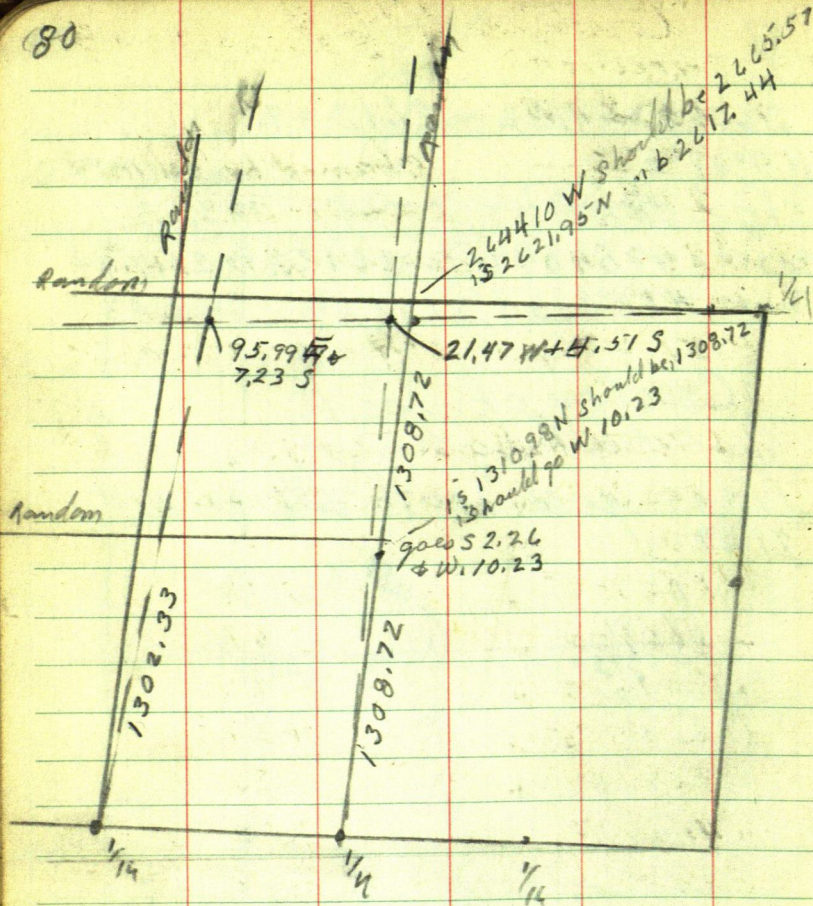 80
Random
Random
2644.10 W should be 2665.57
is 2621.95 N " b 2617.44
Random
1/4
95.99 E &
7.23 S
21.47 W + 4.51 S
1308.72
is 1310.98 N should be 1308.72
should go W 10.23
Random
goes S 2.26
& W. 10.23
1302.33
1308.72
1/16
1/4
1/16